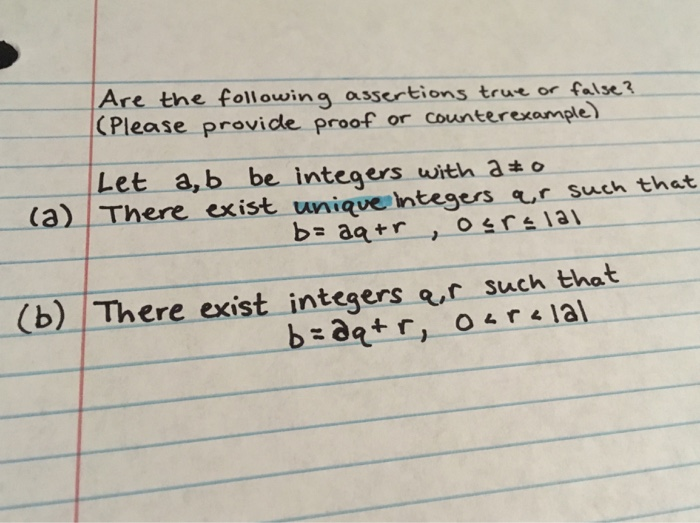 Are the following assertions true or false?
(Please provide proof or counterexample)
Let a, b be integers with a ≠ 0
(a) There exist unique integers q, r such that
b = aq + r , 0 ≤ r ≤ |a|
(b) There exist integers q, r such that
b = aq + r, 0 < r < |a|